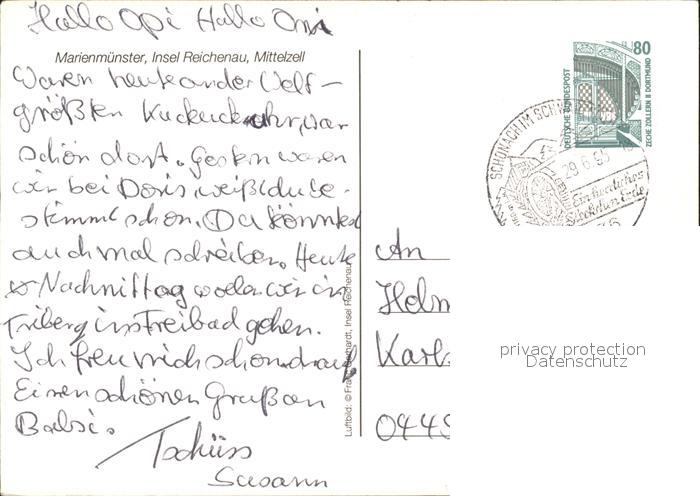 Hallo Opi Hallo Omi
Marienmünster, Insel Reichenau, Mittelzell
Waren heute an der Welt-
größten Kuckucksuhr, war
schön dort. Gestern waren
wir bei Doris, weißt du be-
stimmt schon. Du könntest
auch mal schreiben. Heute
Nachmittag wollen wir in
Triberg ins Freibad gehen.
Ich freu mich schon drauf
Einen schönen Gruß an
Babsi.
Tschüss
Susann
Luftbild: © Insel Reichenau
80
DEUTSCHE BUNDESPOST
ZECHE ZOLLERN II DORTMUND
SCHONACH IM
29.6.93
Ein herrliches
Fleckchen Erde
An
Helm
Karl
privacy protection
Datenschutz
0445